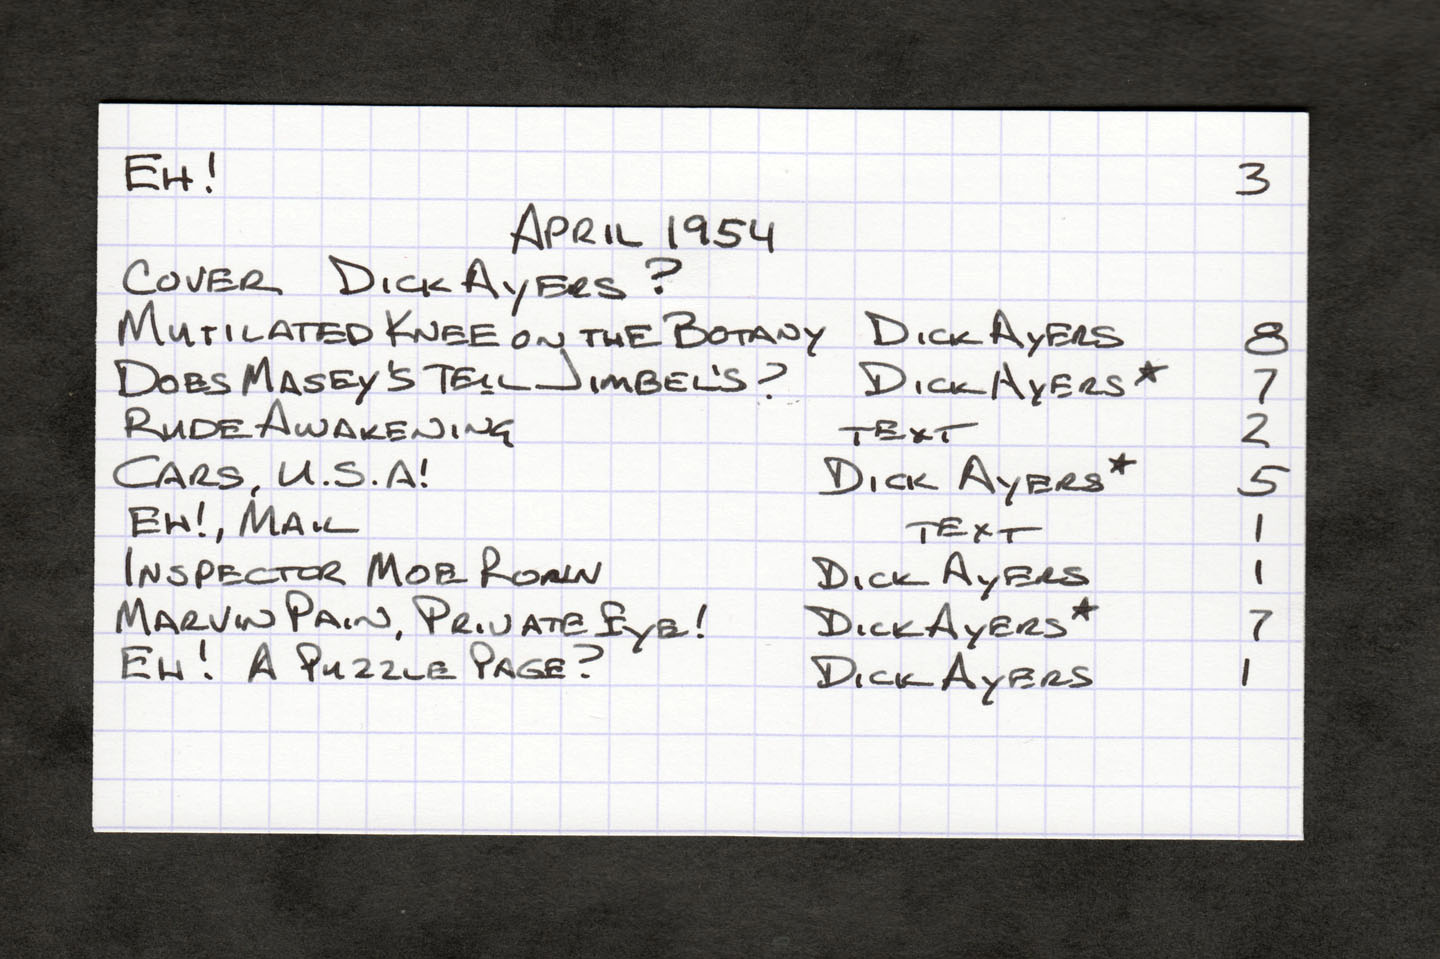 EH! 3
APRIL 1954
COVER DICK AYERS?
MUTILATED KNEE ON THE BOTANY DICK AYERS 8
DOES MASEY'S TELL JIMBEL'S? DICK AYERS* 7
RUDE AWAKENING TEXT 2
CARS, U.S.A! DICK AYERS* 5
EH!, MAIL TEXT 1
INSPECTOR MOE RONIN DICK AYERS 1
MARVIN PAIN, PRIVATE EYE! DICK AYERS* 7
EH! A PUZZLE PAGE? DICK AYERS 1